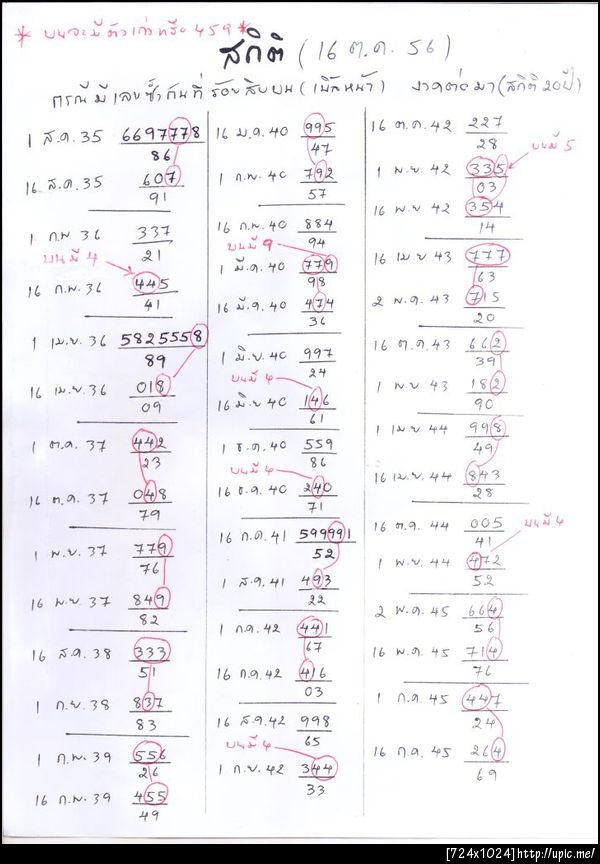 * บนจะมีตัวเก่าหรือ 459 *
สถิติ (16 ต.ค. 56)
กรณีมีเลขซ้ำกันที่ ร้อยสิบบน (เบิ้ลหน้า) งวดต่อมา (สถิติ 20 ปี)
1 ส.ค. 35 6697778
86
16 ส.ค. 35 607
91
1 ก.พ. 36 337
21
บนมี 4
16 ก.พ. 36 445
41
1 เม.ย. 36 5825558
89
16 เม.ย. 36 018
09
1 ต.ค. 37 442
23
16 ต.ค. 37 048
79
1 พ.ย. 37 779
76
16 พ.ย. 37 849
82
16 ส.ค. 38 333
51
1 ก.ย. 38 837
83
1 ก.พ. 39 556
26
16 ก.พ. 39 455
49
16 ม.ค. 40 995
47
1 ก.พ. 40 792
57
16 ก.พ. 40 884
94
บนมี 9
1 มี.ค. 40 779
98
16 มี.ค. 40 474
36
1 มิ.ย. 40 997
24
บนมี 4
16 มิ.ย. 40 146
61
1 ธ.ค. 40 559
86
บนมี 4
16 ธ.ค. 40 240
71
16 ก.ค. 41 599991
52
1 ส.ค. 41 493
22
1 ก.ค. 42 441
67
16 ก.ค. 42 416
03
16 ส.ค. 42 998
65
บนมี 4
1 ก.ย. 42 344
33
16 ต.ค. 42 227
28
บนมี 5
1 พ.ย. 42 335
03
16 พ.ย. 42 354
14
16 เม.ย. 43 777
63
2 พ.ค. 43 715
20
16 ต.ค. 43 662
39
1 พ.ย. 43 182
90
1 เม.ย. 44 998
49
16 เม.ย. 44 843
28
16 ต.ค. 44 005
41
บนมี 4
1 พ.ย. 44 472
52
2 พ.ค. 45 664
56
16 พ.ค. 45 714
76
1 ก.ค. 45 447
24
16 ก.ค. 45 264
69
[724x1024]http://upic.me/